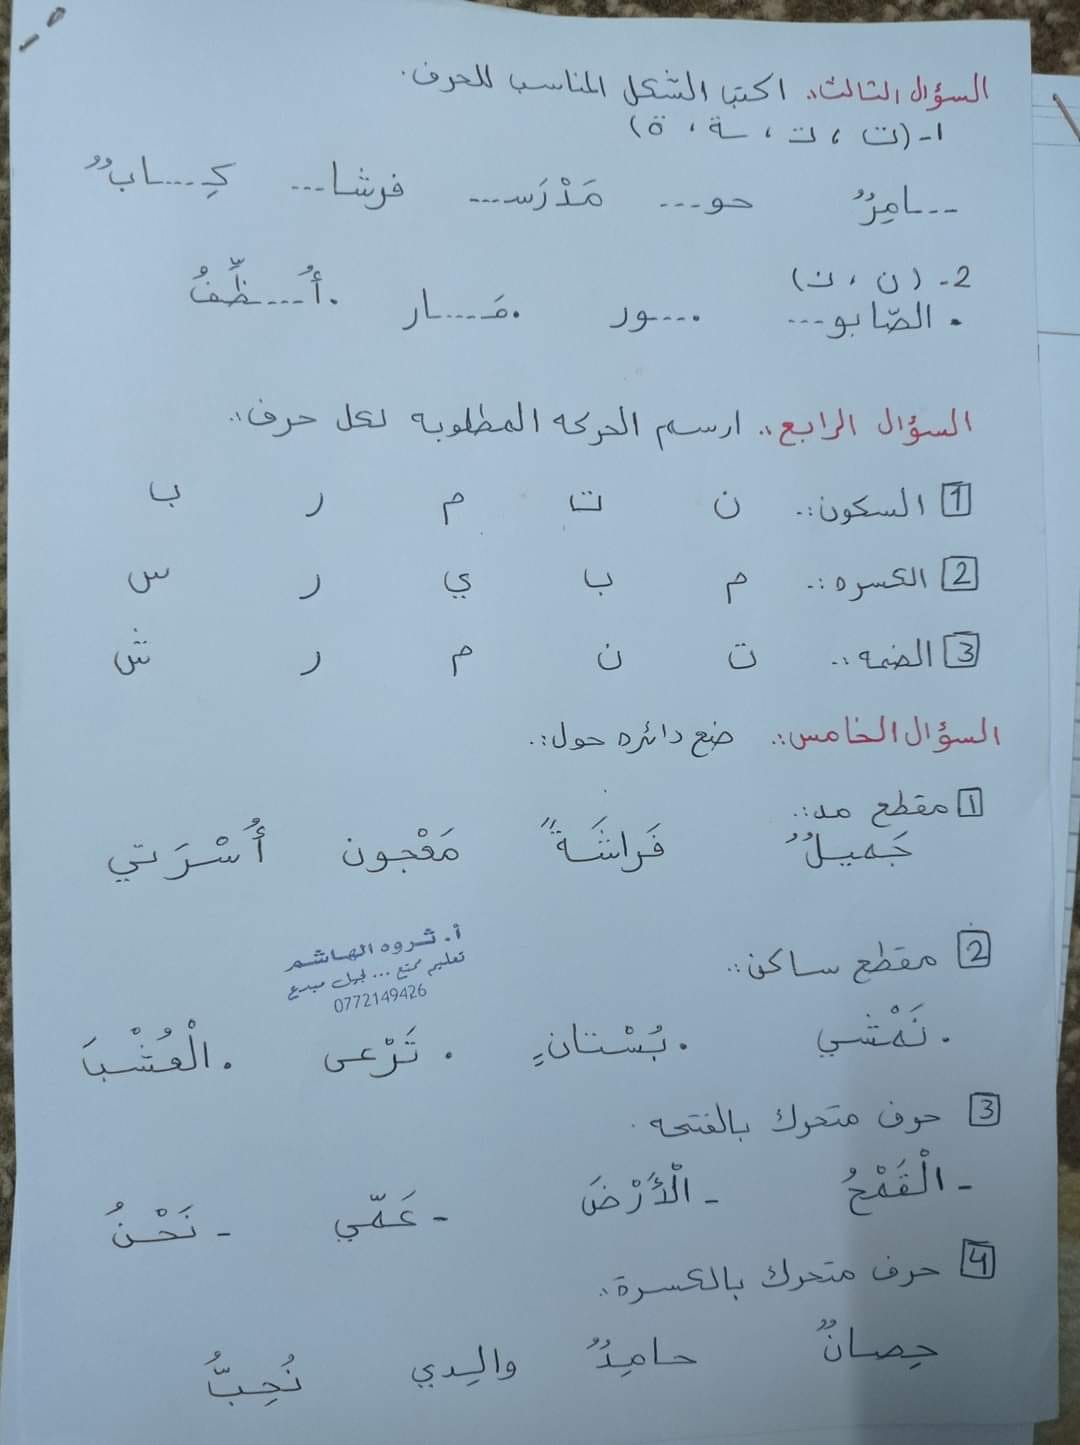 السؤال الثالث:. اكتب الشكل المناسب للحرف.
1- (ت ، تـ ، ـة ، ة)
...ـامِرٌ حو... مَدْرَسـ... فرشا... كِـ...ـابٌ
2- (ن ، نـ)
. الصّابو... . ...ـور . مَـ...ـار . أُ...ـظِّفُ
السؤال الرابع:. ارسم الحركه المطلوبه لكل حرف:.
1 السكون:. ن تـ م ر ب
2 الكسره:. م ب ي ر س
3 الضمه:. ت ن م ر ش
السؤال الخامس:. ضع دائره حول:.
1 مقطع مد:.
جَميلٌ فَراشَةً مَعْجون أُسْرَتي
أ. ثروه الهاشم
تعليم ممتع ... لجيل مبدع
0772149426
2 مقطع ساكن:.
. نَمْشي . بُسْتانٍ . تَرْعى . الْعُشْبَا
3 حرف متحرك بالفتحه .
- الْقَمْحُ - الْأَرْضَ - عَمّي - نَحْنُ
4 حرف متحرك بالكسرة:.
حِصانٌ حامِدٌ والِدي نُحِبُّ